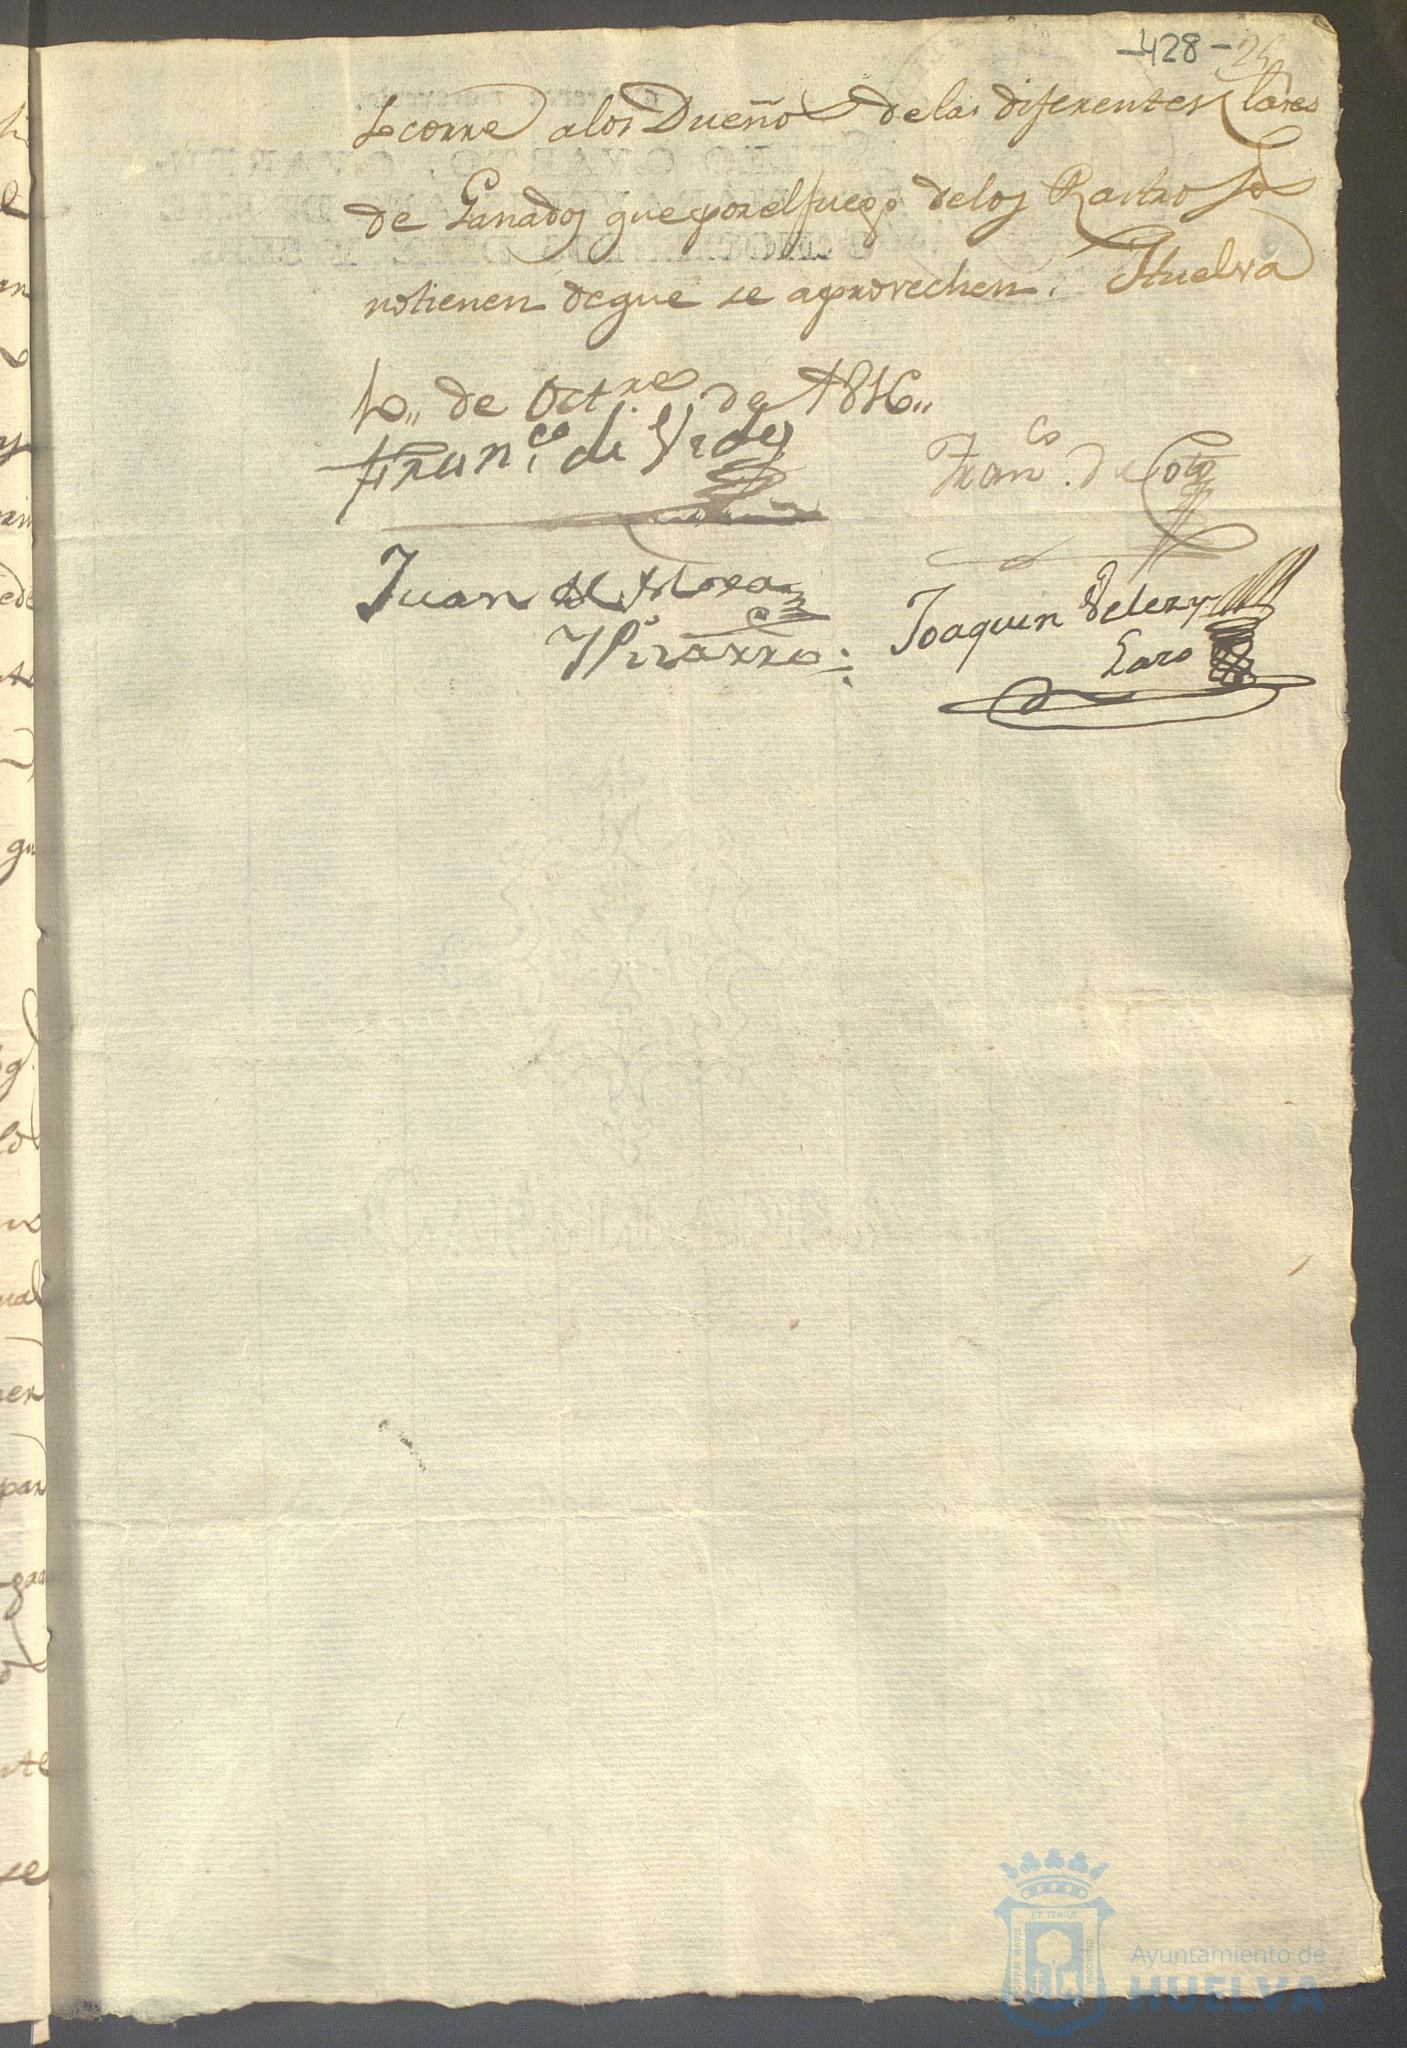 -428-
corre a los Dueños de las diferentes Clases
de Ganados que por el fuego de los Rastrojos
no tienen de que se aprovechen. Huelva
de Octre. de 1816,,
Franco. de Vides
Franco. de Coto
Juan de Mora
Y Pizarro
Joaquin Velez y
Lazo
Ayuntamiento de
HUELVA